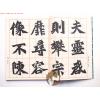 夫靈感
則攀宗
靡尋容
像不陳